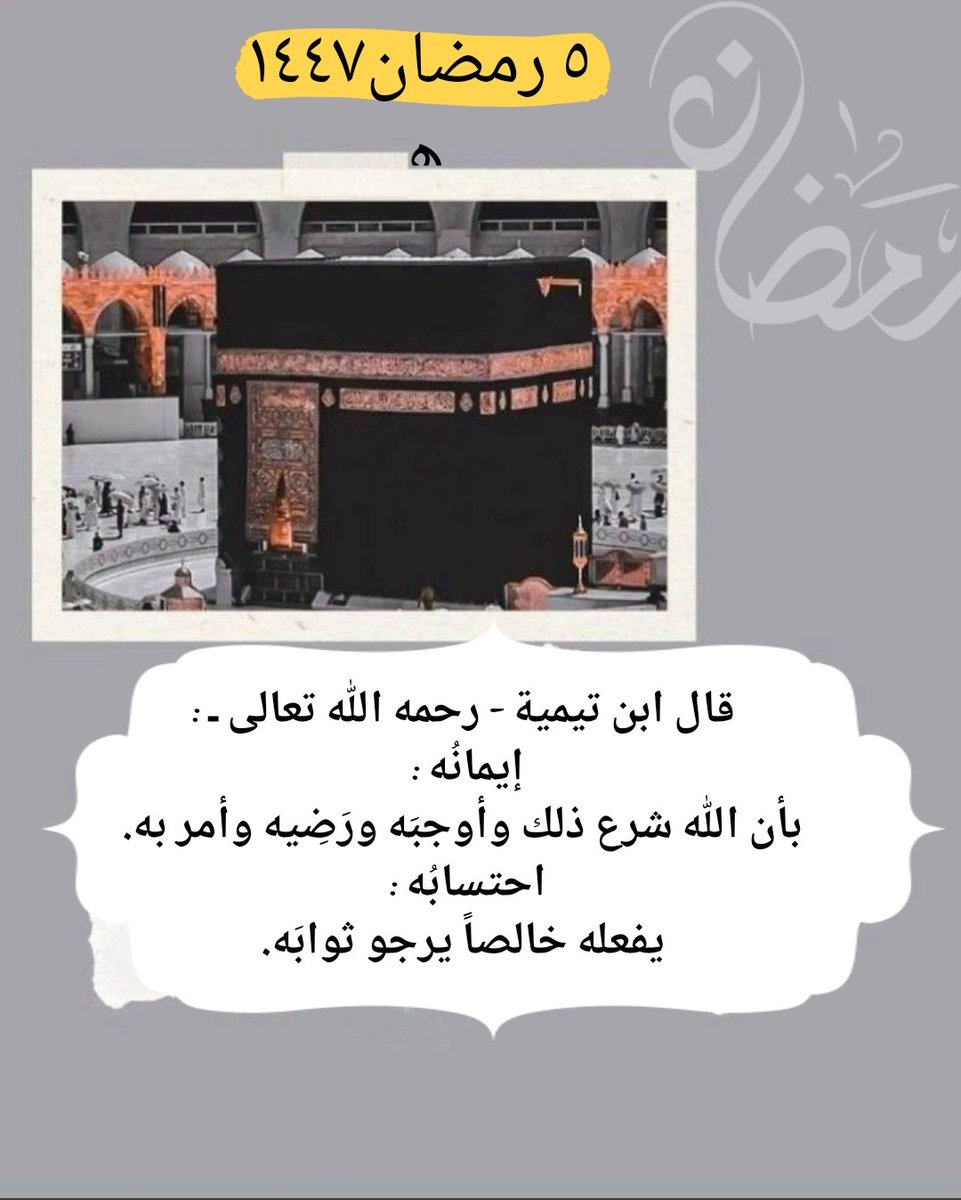 ٥ رمضان١٤٤٧
ه
رمضان
قال ابن تيمية - رحمه الله تعالى ـ :
إيمانُه :
بأن الله شرع ذلك وأوجبَه ورَضِيه وأمر به.
احتسابُه :
يفعله خالصاً يرجو ثوابَه.